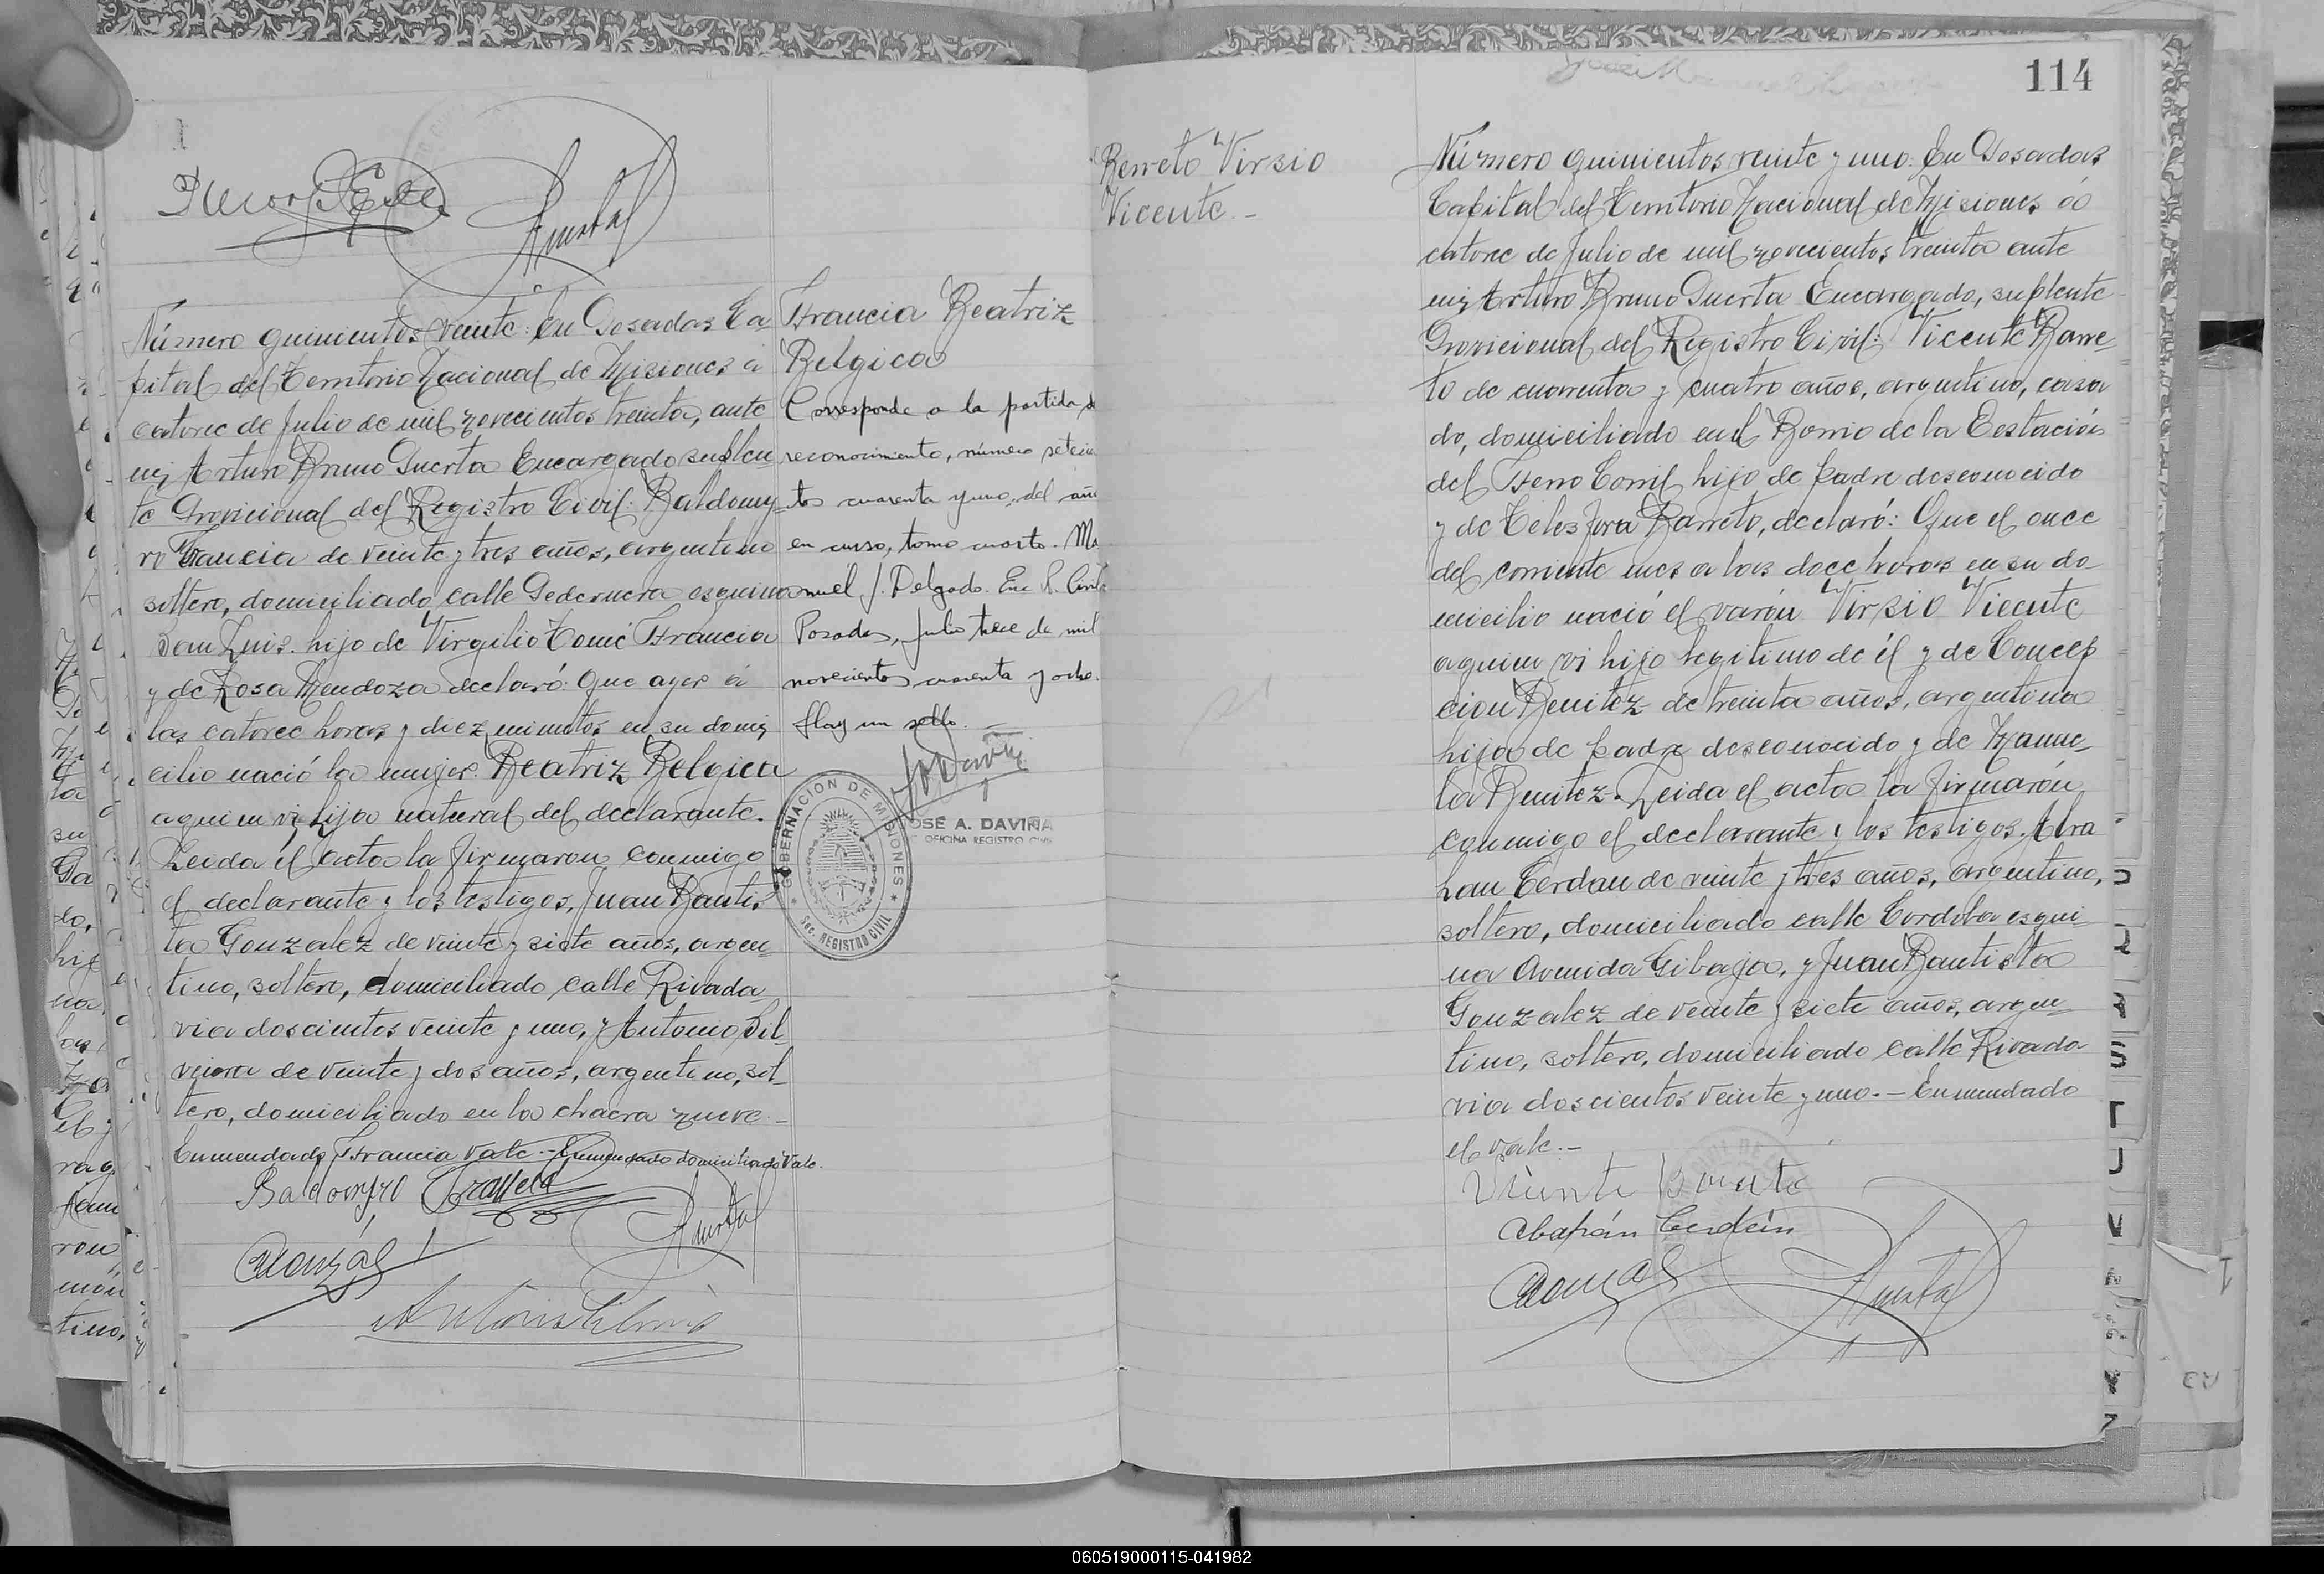 Número quinientos veinte: En Posadas Ca
pital del Territorio Nacional de Misiones á
catorce de Julio de mil novecientos treinta, ante
mi, Arturo Bruno Puerta Encargado suplen
te Provicional del Registro Civil: Baldomy
ro Francia de veinte y tres años, argentino
soltero, domiciliado calle Pedernera esquina
San Luis. hijo de Virgilio Tomé Francia
y de Rosa Mendoza declaró: Que ayer á
las catorce horas y diez minutos en su domi
cilio nació la mujer Beatriz Belgica
a quien vi, hija natural del declarante.
Leida el acta la firmaron conmigo
el declarante y los testigos, Juan Bautis
ta Gonzalez de veinte y siete años, argen
tino, soltero, domiciliado calle Rivada
via doscientos veinte y uno, y Antonio Sil
veira de veinte y dos años, argentino, sol
tero, domiciliado en la chacra nueve.-
Enmendado, Francia Vale.- Enmendado domiciliado Vale.
Baldomyro Francia
Gonzál
Francia Beatriz
Belgica
Corresponde a la partida de
reconocimiento, número setecien
tos cuarenta y uno, del año
en curso, tomo cuarto. Ma
nuel J. Delgado. Enc R. Civil
Posadas, Julio trece de mil
novecientos cuarenta y ocho.
Hay un sello.-
GOBERNACION DE MISIONES
Sec. REGISTRO CIVIL
JOSE A. DAVIÑA
OFICINA REGISTRO CIVIL
114
Barreto Virsio
Vicente.-
Número quinientos veinte y uno: En Posadas
Capital del Territorio Nacional de Misiones á
catorce de Julio de mil novecientos treinta ante
mi, Arturo Bruno Puerta Encargado, suplente
Provicional del Registro Civil: Vicente Barre
to de cuarenta y cuatro años, argentino, casa
do, domiciliado en el Barrio de la Eestación
del Ferro Carril, hijo de padre desconocido
y de Celesfora Barreto, declaró: Que el once
del corriente mes a las doce horas en su do
micilio nació el varón Virsio Vicente
a quien vi hijo legitimo de él y de Concep
cion Benitez de treinta años, argentina
hija de padre desconocido y de Manue
la Benitez.- Leida el acta la firmarón
conmigo el declarante y los testigos. Abra
ham Cerdan de veinte y tres años, argentino,
soltero, domiciliado calle Cordoba esqui
na Avenida Gibaja, y Juan Bautista
Gonzalez de veinte y siete años, argen
tino, soltero, domiciliado calle Rivada
via doscientos veinte y uno.- Enmendado
el vale.-
Vicente Barreto
Abrahán Cerdán
Gonzál
060519000115-041982